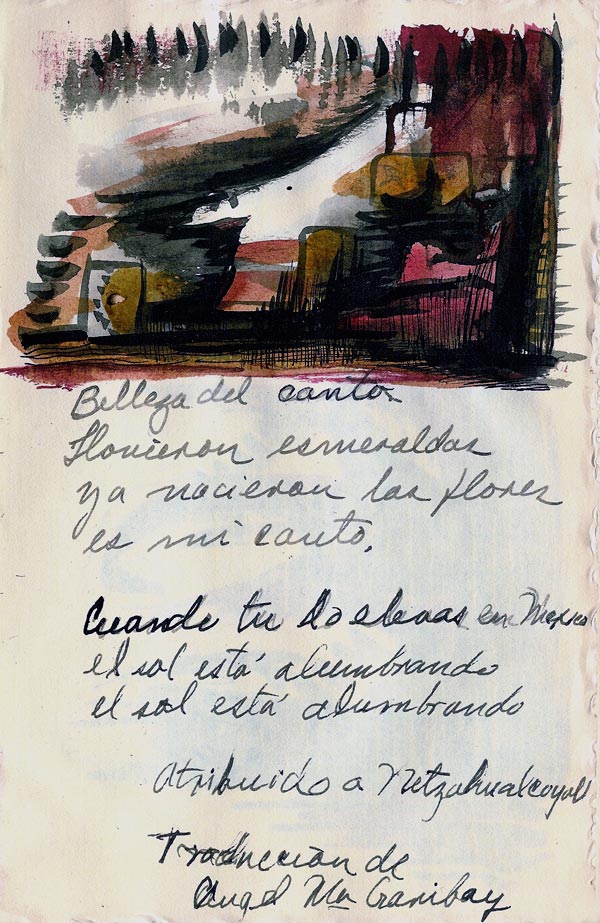 Belleza del canto
Llovieron esmeraldas
ya nacieron las flores
es mi canto.
Cuando tu lo elevas en Mexico
el sol está alumbrando
el sol está alumbrando
atribuido a Netzahualcoyotl
Traducción de
Angel Ma Garibay